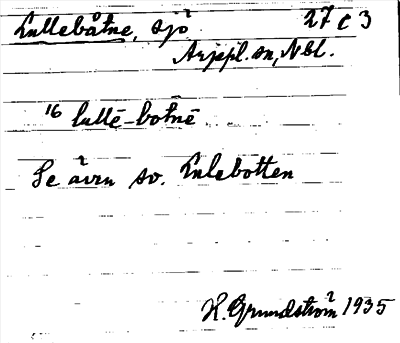 Luttebåtne, sjö 27 c 3
Arjepl. sn, Nbl.
16 luttē-botnē
Se även sv. Lulebotten
H. Grundström 1935